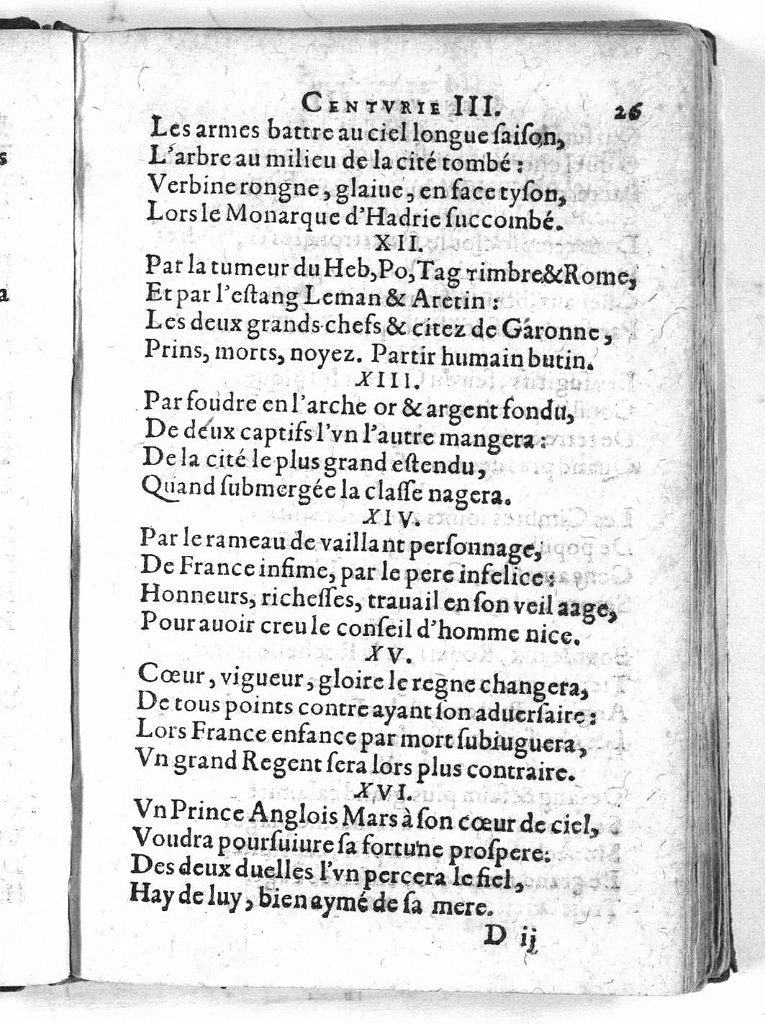 CENTVRIE III. 26
Les armes battre au ciel longue ſaiſon,
L'arbre au milieu de la cité tombé:
Verbine rongne, glaiue, en face tyſon,
Lors le Monarque d'Hadrie ſuccombé.
XII.
Par la tumeur du Heb, Po, Tag timbre & Rome,
Et par l'eſtang Leman & Aretin:
Les deux grands chefs & citez de Garonne,
Prins, morts, noyez. Partir humain butin.
XIII.
Par foudre en l'arche or & argent fondu,
De deux captifs l'vn l'autre mangera:
De la cité le plus grand eſtendu,
Quand ſubmergée la claſſe nagera.
XIV.
Par le rameau de vaillant perſonnage,
De France infime, par le pere infelice:
Honneurs, richeſſes, trauail en ſon veil aage,
Pour auoir creu le conſeil d'homme nice.
XV.
Cœur, vigueur, gloire le regne changera,
De tous points contre ayant ſon aduerſaire:
Lors France enfance par mort ſubiuguera,
Vn grand Regent ſera lors plus contraire.
XVI.
Vn Prince Anglois Mars à ſon cœur de ciel,
Voudra pourſuiure ſa fortune proſpere:
Des deux duelles l'vn percera le fiel,
Hay de luy, bien aymé de ſa mere.
D ij